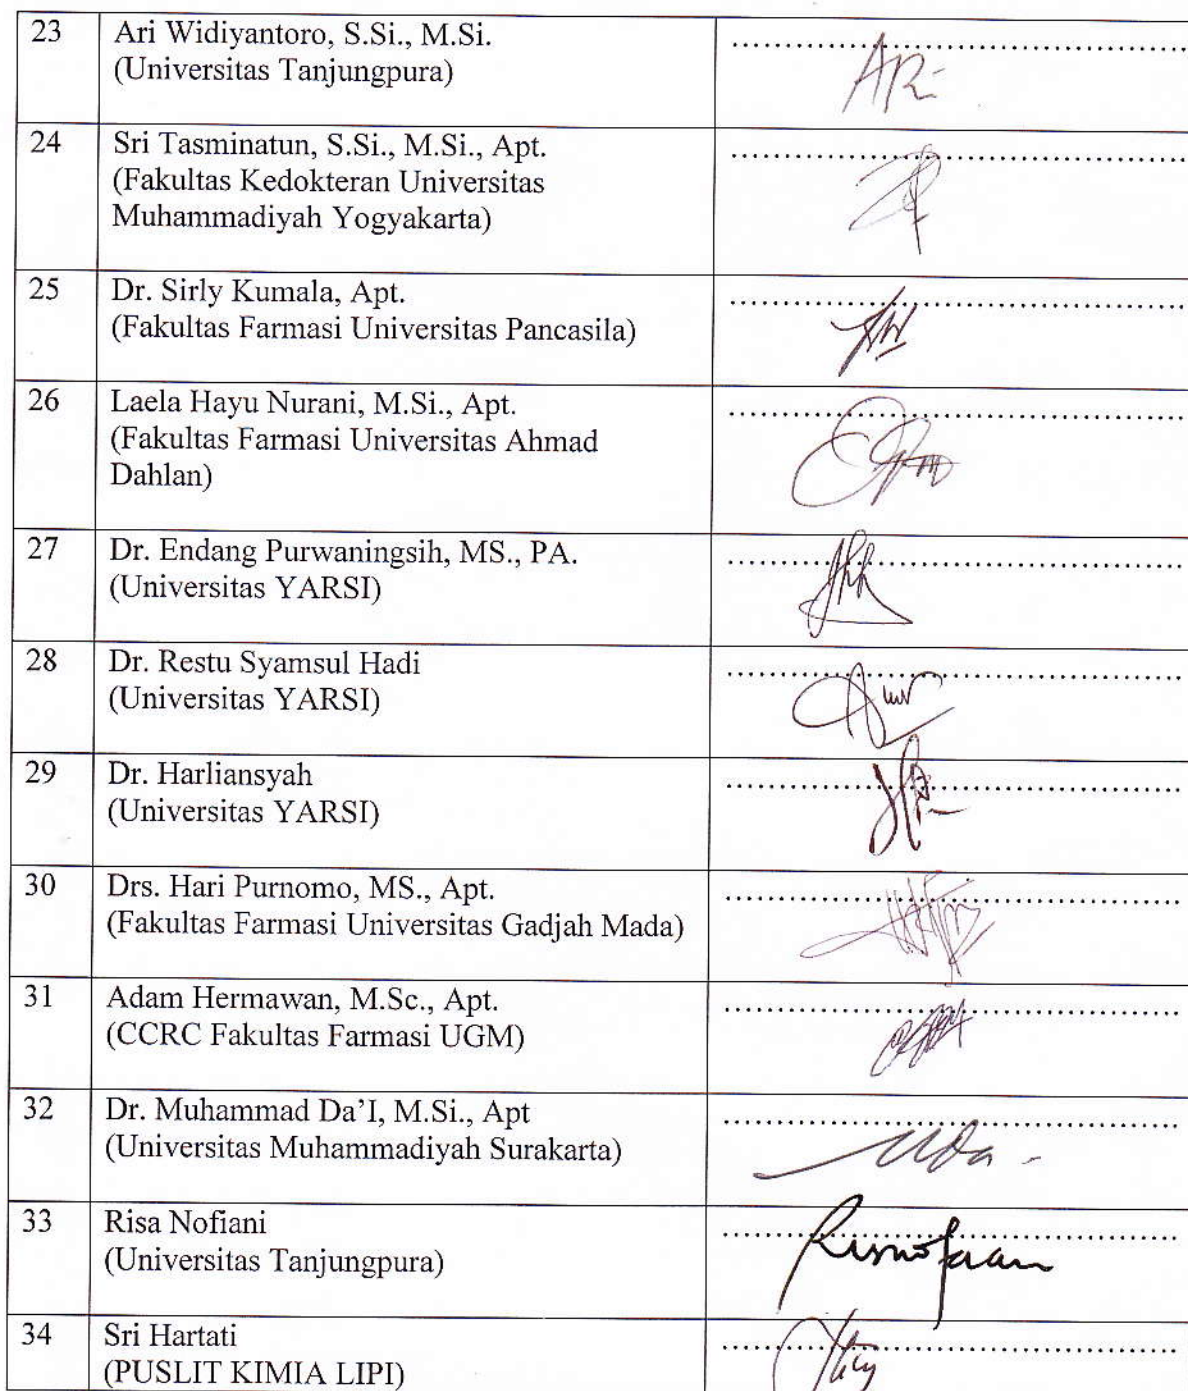 23 Ari Widiyantoro, S.Si., M.Si.
(Universitas Tanjungpura)
24 Sri Tasminatun, S.Si., M.Si., Apt.
(Fakultas Kedokteran Universitas
Muhammadiyah Yogyakarta)
25 Dr. Sirly Kumala, Apt.
(Fakultas Farmasi Universitas Pancasila)
26 Laela Hayu Nurani, M.Si., Apt.
(Fakultas Farmasi Universitas Ahmad
Dahlan)
27 Dr. Endang Purwaningsih, MS., PA.
(Universitas YARSI)
28 Dr. Restu Syamsul Hadi
(Universitas YARSI)
29 Dr. Harliansyah
(Universitas YARSI)
30 Drs. Hari Purnomo, MS., Apt.
(Fakultas Farmasi Universitas Gadjah Mada)
31 Adam Hermawan, M.Sc., Apt.
(CCRC Fakultas Farmasi UGM)
32 Dr. Muhammad Da’I, M.Si., Apt
(Universitas Muhammadiyah Surakarta)
33 Risa Nofiani
(Universitas Tanjungpura)
34 Sri Hartati
(PUSLIT KIMIA LIPI)